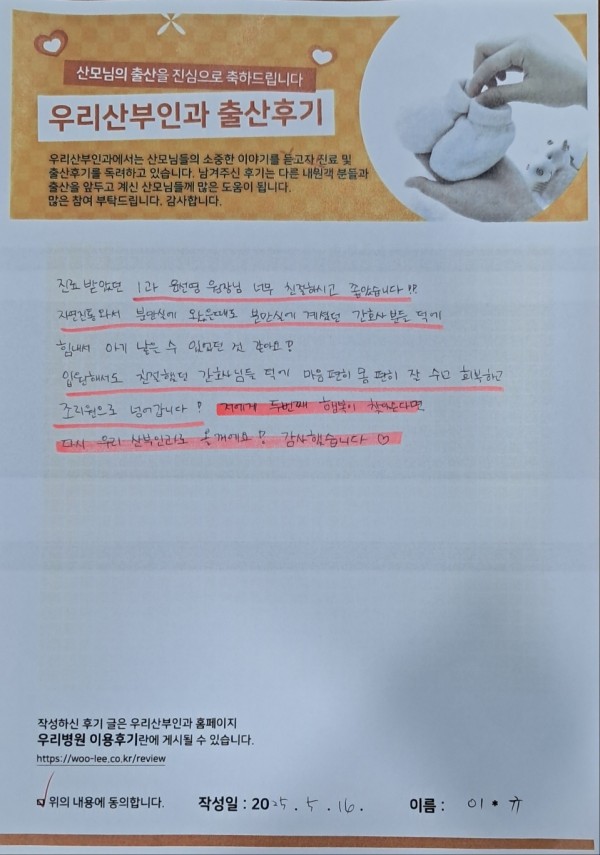 산모님의 출산을 진심으로 축하드립니다
우리산부인과 출산후기
우리산부인과에서는 산모님들의 소중한 이야기를 듣고자 진료 및
출산후기를 독려하고 있습니다. 남겨주신 후기는 다른 내원객 분들과
출산을 앞두고 계신 산모님들께 많은 도움이 됩니다.
많은 참여 부탁드립니다. 감사합니다.
진료 받았던 1과 윤선영 원장님 너무 친절하시고 좋았습니다!!
자연진통와서 분만실에 왔을때도 분만실에 계셨던 간호사분들 덕에
힘내서 아기 낳은 수 있었던 건 같아요!
입원해서도 친절했던 간호사님들 덕에 마음편히 몸 편히 잘 쉬고 회복하고
조리원으로 넘어갑니다! 저에게 두번째 행복이 찾아온다면
다시 우리 산부인과로 올게요! 감사했습니다 ♡
작성하신 후기 글은 우리산부인과 홈페이지
우리병원 이용후기란에 게시될 수 있습니다.
https://woo-lee.co.kr/review
위의 내용에 동의합니다. 작성일 : 2025. 5. 16. 이름 : 이*규